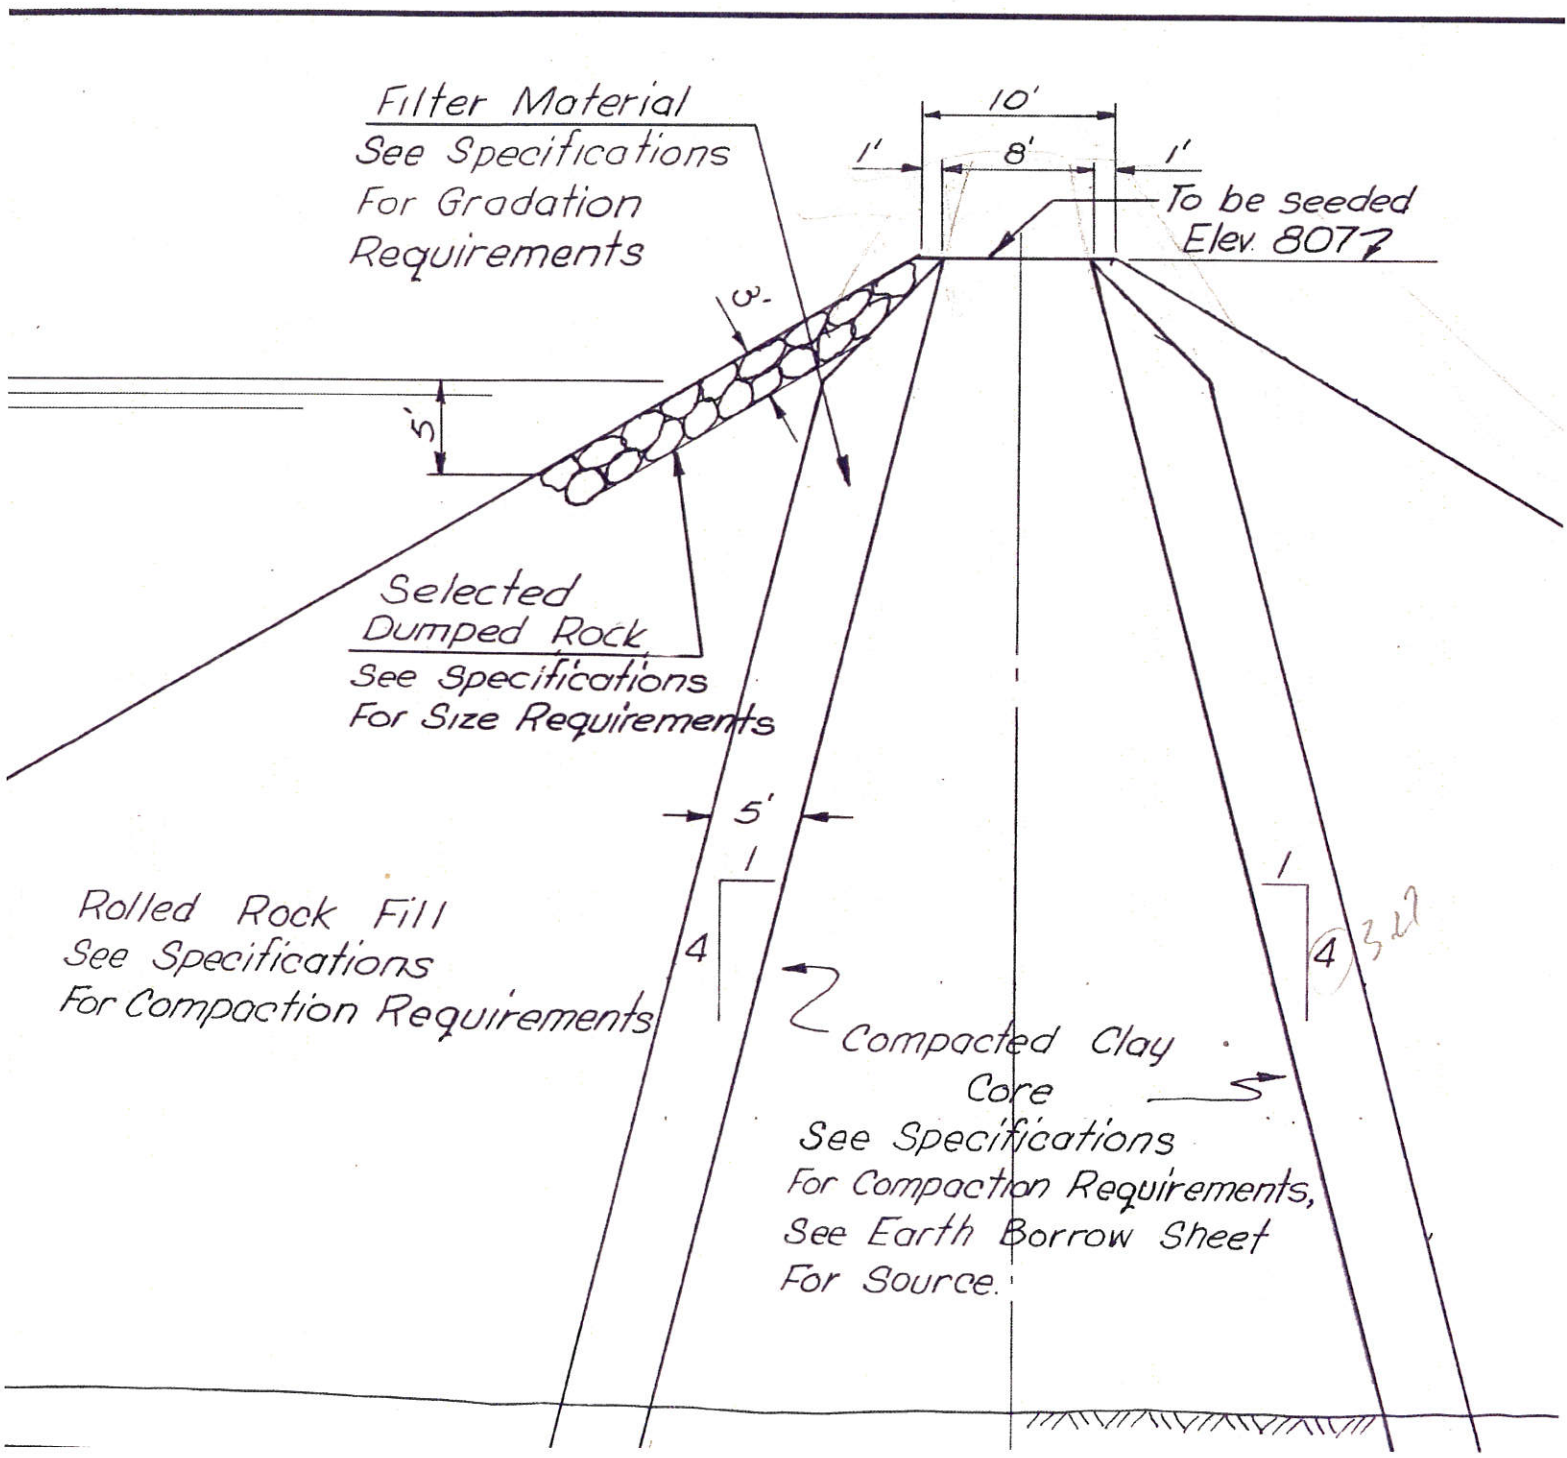 Filter Material
See Specifications
For Gradation
Requirements
10'
1'
8'
1'
To be seeded
Elev. 807
3'
5'
Selected
Dumped Rock
See Specifications
For Size Requirements
5'
1
4
1
4
Rolled Rock Fill
See Specifications
For Compaction Requirements
Compacted Clay
Core
See Specifications
For Compaction Requirements,
See Earth Borrow Sheet
For Source.